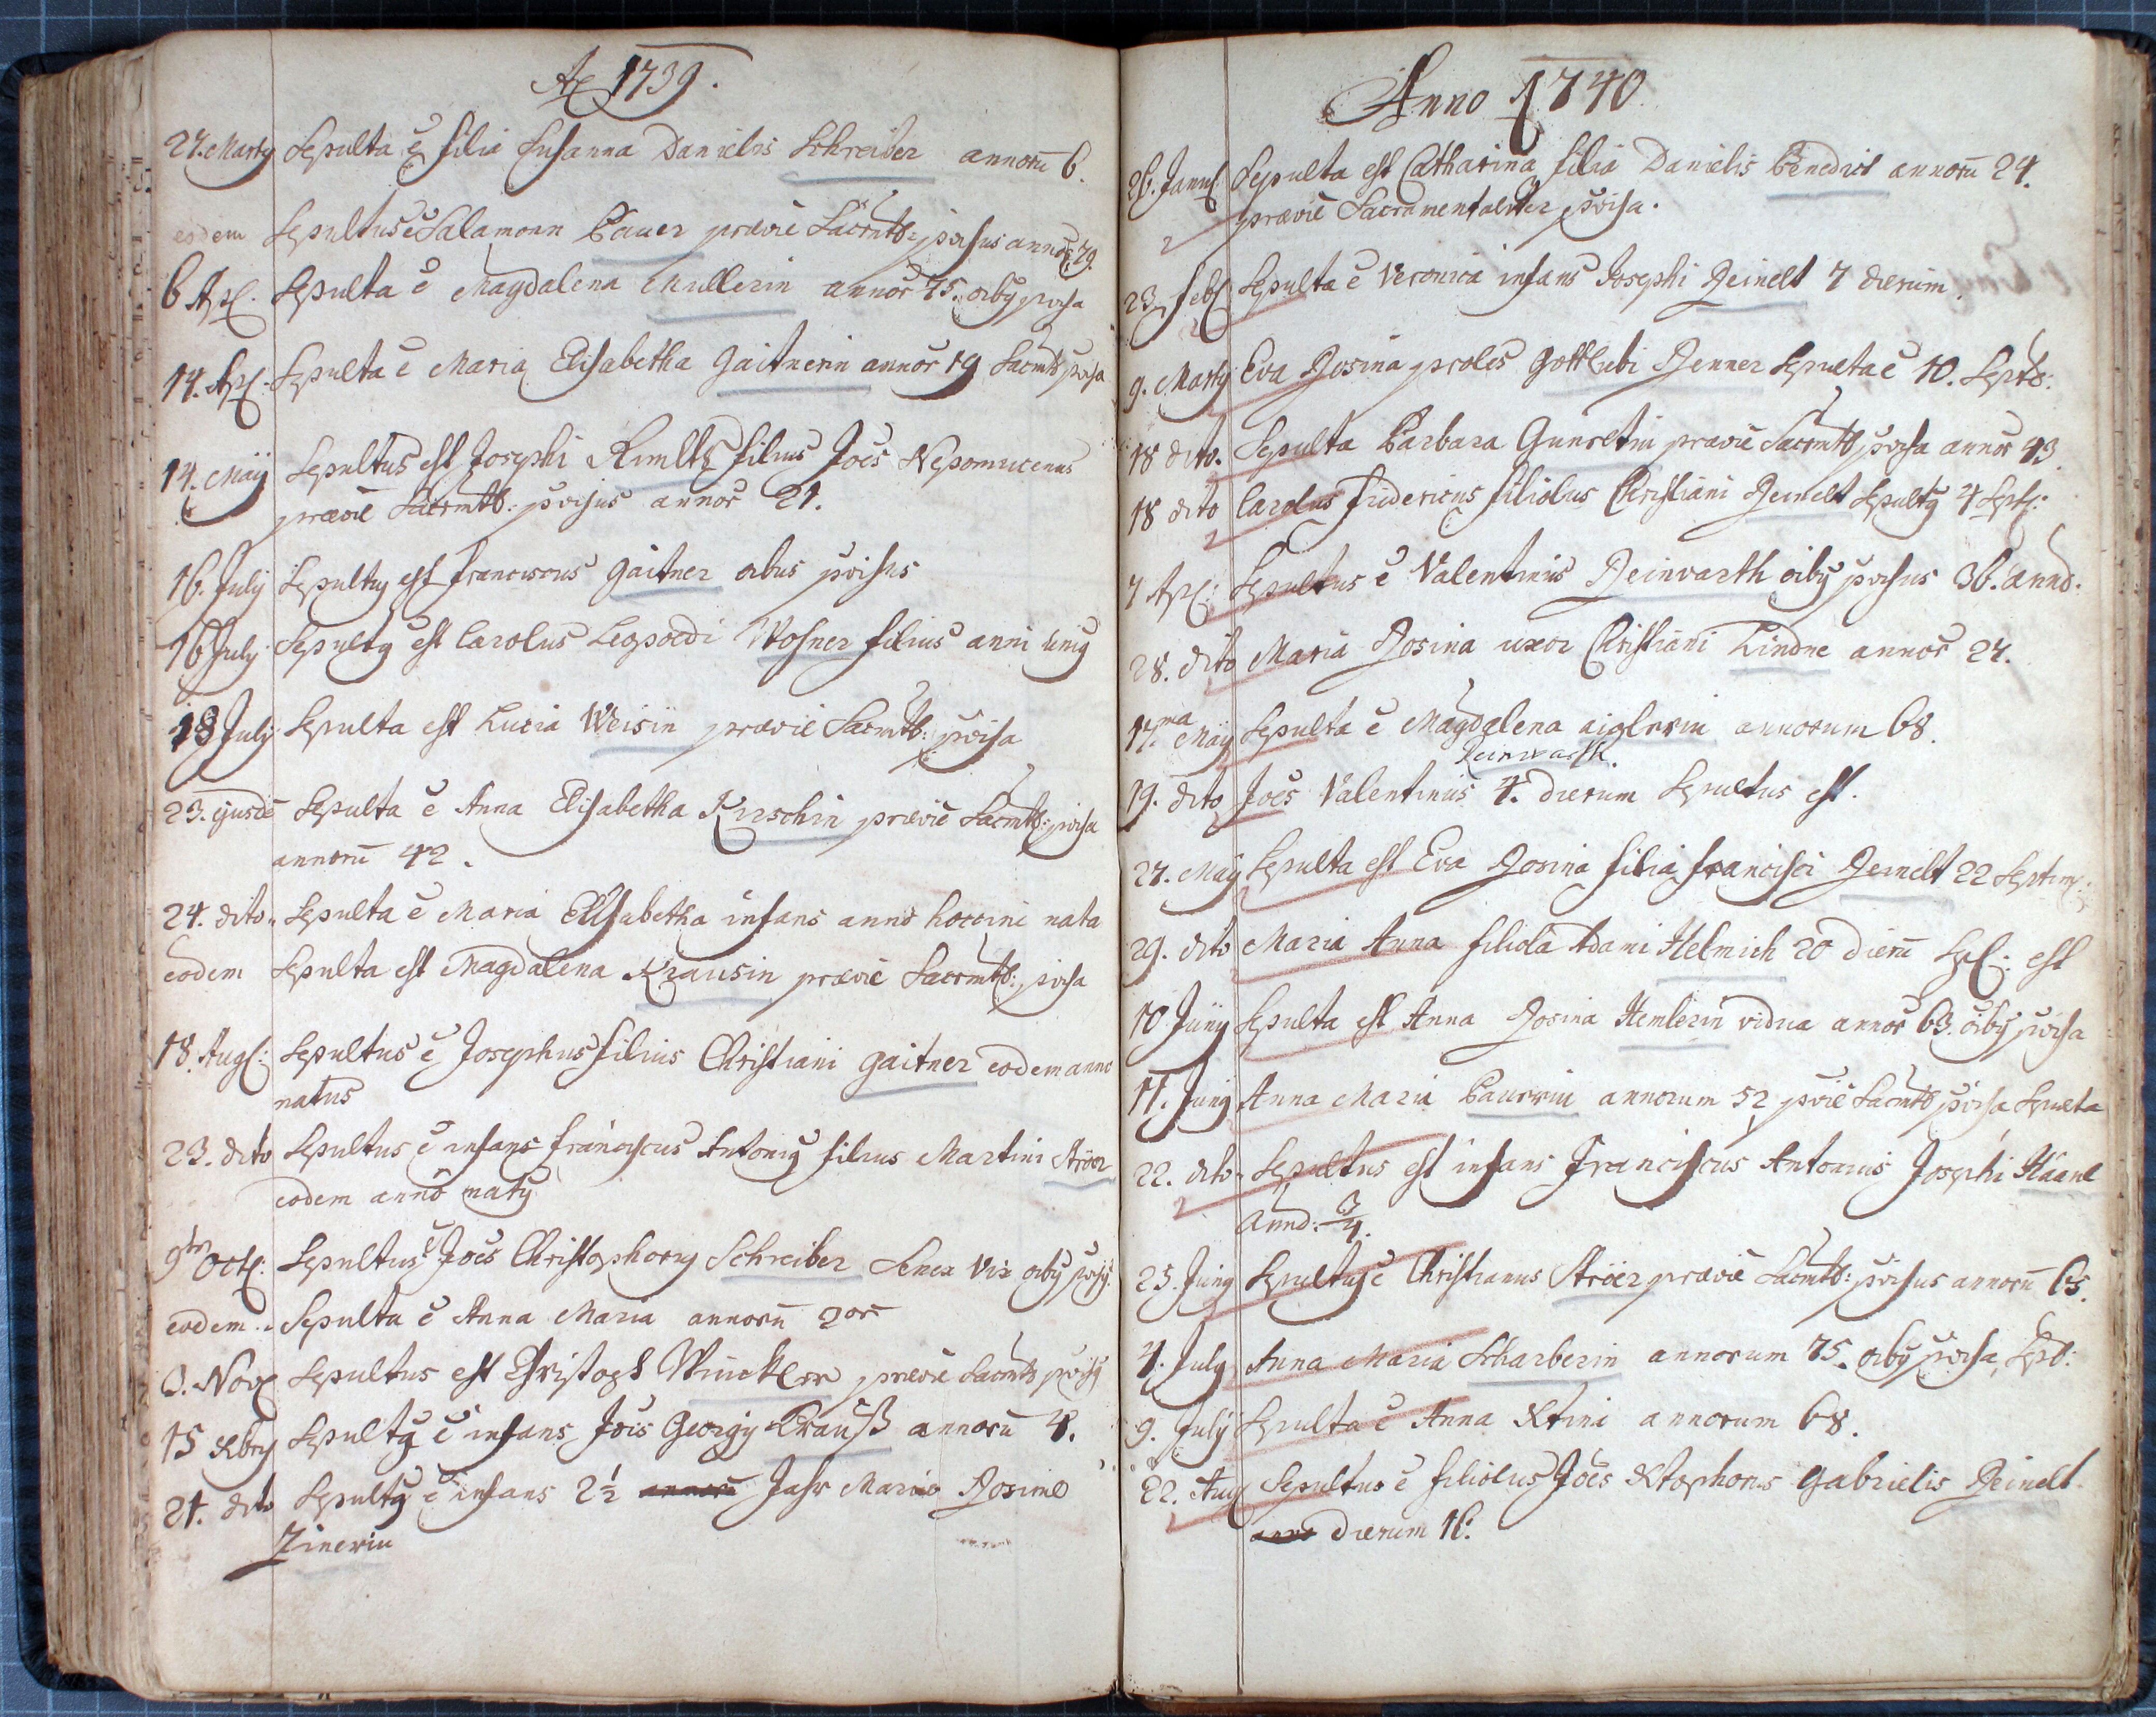 Aō 1739.
27. Marty Sepulta ē filia Susanna Danielis Schreiber annorū 6.
eodem Sepultus ē Salamonn Bauer prævie Sacrmtb: p͞visus annor 79.
6 Apl. Sepulta ē Magdalena Mullerin annor̄ 75. oib9 p͞visa
14. Apl: Sepulta ē Maria Elisabetha Gaitnerin annor̄ 19 Sacmtb p͞visa
14. Maÿ Sepultus est Josephi filius Joēs Nepomucenus
prævie Sacrmtb: p͞visus annor̄ 21.
16. July Sepultus est Franciscus Gaitner oibus p͞visus
16 July Sepult9 est Carolus Leopoldi Wosner filius anni uni9
18 July Sepulta est Lucia Weisin prævie Sacrmtb: p͞visa
23. ejusdē Sepulta ē Anna Elisabetha Kirschin prævie Sacmtb: p͞visa
annorū 42.
24. dito. Sepulta ē Maria Elisabetha infans anno nata
eodem Sepulta est Magdalena Krausin prævie Sacrmtb: p͞visa
18. Augl: Sepultus ē Josephus filius Christiani Gaitner eodem anno
natus
23. dito Sepultus ē infans Franciscus Antoni9 filius Martini Ströer
eodem anno nat9
9br Octl: Sepultus ē Joēs Christophor9 Schreiber Senex Vir oib9 p͞vis9.
eodem.. Sepulta ē Anna Maria annorū 2or
3. Novl Sepultus est Christoph Wincklerr prævie Sacmtb p͞vis9
15 Xbry Sepult9 ē infans Jōis Georgy Krauß annorū 4.
21. dito Sepult9 ē infans 2½ annorū Jahr Maria Rosina
Zinerin
Anno 1740
26. Janul Sepulta est Catharina filia Danielis Benedict annorū 24.
prævie Sacramentaliter p͞visa.
23. febl Sepulta ē Veronica infans Josephi Reinelt 7 dierum.
9. Marty Eva Rosina proles Gottlubi Renner Sepulta ē 10. Septb:
18 dito. Sepulta Barbara prævie Sacrmtb p͞visa annor̄ 43.
18 dito Carolus Fridericus filiolus Christiani Reinelt Sepult9 4 Sept:
7 Apl: Sepultus ē Valentinus Reinvarth oib9 p͞visus 36. anno.
28. dito Maria Rosina uxor Christiani Lindne annor̄ 24.
17.ma Maÿ Sepulta ē Magdalena aiglerin annorum 68.
Reinvarth.
19. dito Joēs Valentinus 4. dierum Sepultus est.
27. Maÿ Sepulta est Eva Rosina filia Francisci Reinelt 22 Septim:
29. dito Maria Anna filiola Adami Helmich 20 dierū Spl: est
10 Juny Sepulta est Anna Rosina Hemlerin vidua annor̄ 63. oib9 p͞visa
11. Juny Anna Maria Baurrin annorum 52 p͞vie Sacmtb p͞visa Sepulta
22. dito. Sepultus est infans Franciscus Antonius Josephi Häanl
Anno: 3/4.
25. Juny Sepultus ē Christianus Ströer prævie Sacmtb: p͞visus annorū 65.
4. July Anna Maria Scharberin annorum 75. oib9 p͞visa, Splt:
9. July Sepulta ē Anna Xtina annorum 68.
22. Aug Sepultus ē filiolus Joēs Xtophorus Gabrielis Reinelt
anno dierum 16.